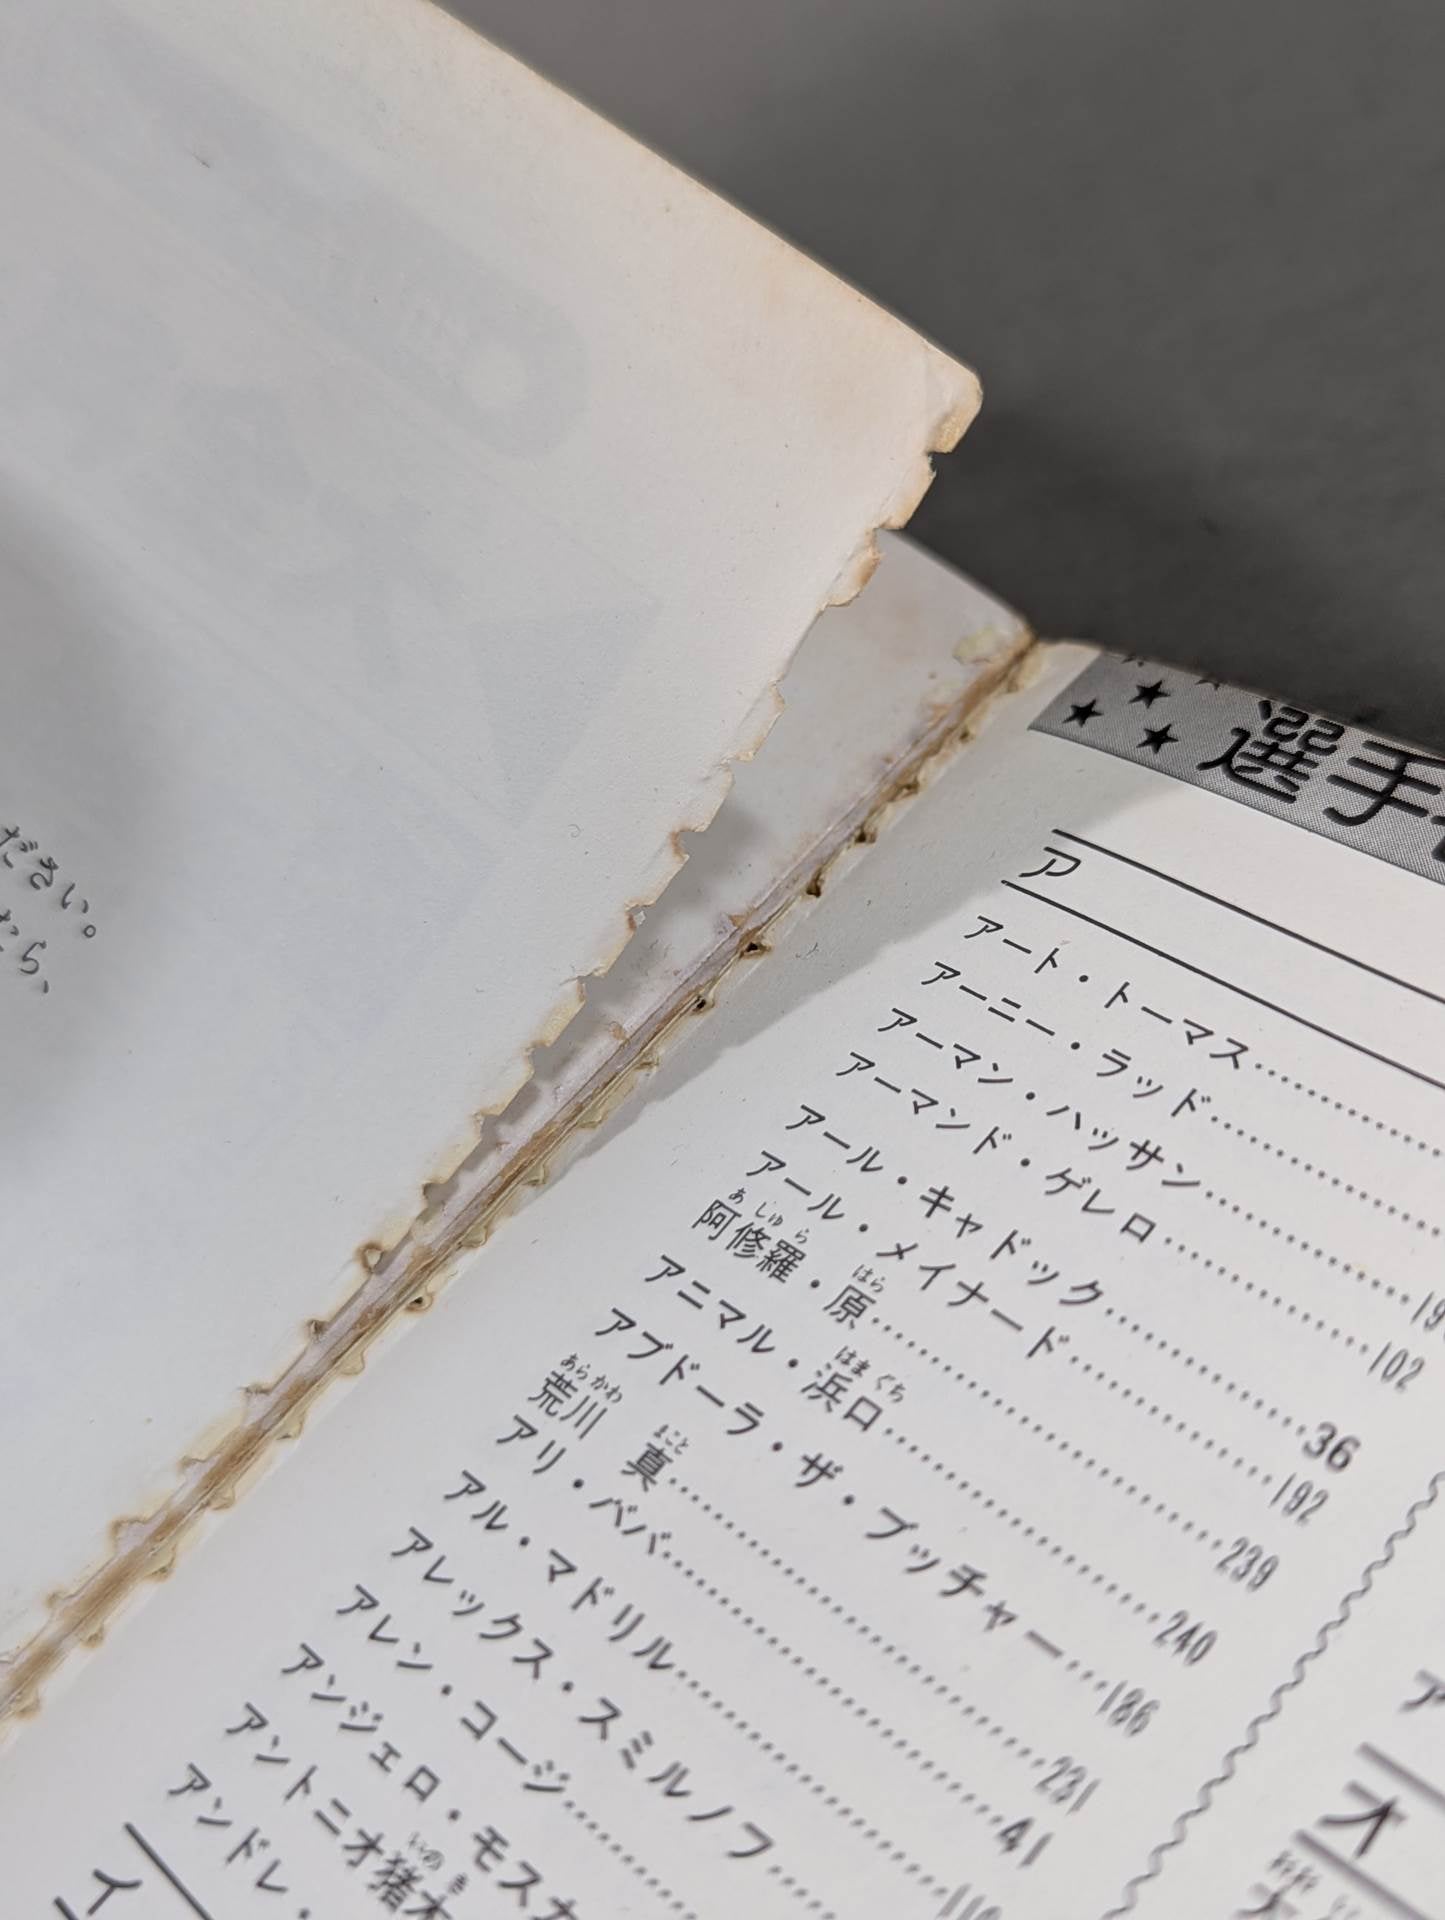 ださい。
たら、
選手
ア
アート・トーマス
アーニー・ラッド
アーマン・ハッサン
アーマンド・ゲレロ……102
アール・キャドック……36
アール・メイナード……192
阿修羅・原……239
アニマル・浜口……240
アブドーラ・ザ・ブッチャー……186
荒川 真……231
アリ・ババ……41
アル・マドリル
アレックス・スミルノフ
アレン・コージ
アンジェロ・モスカ
アントニオ猪木
アンドレ・
イ
オ